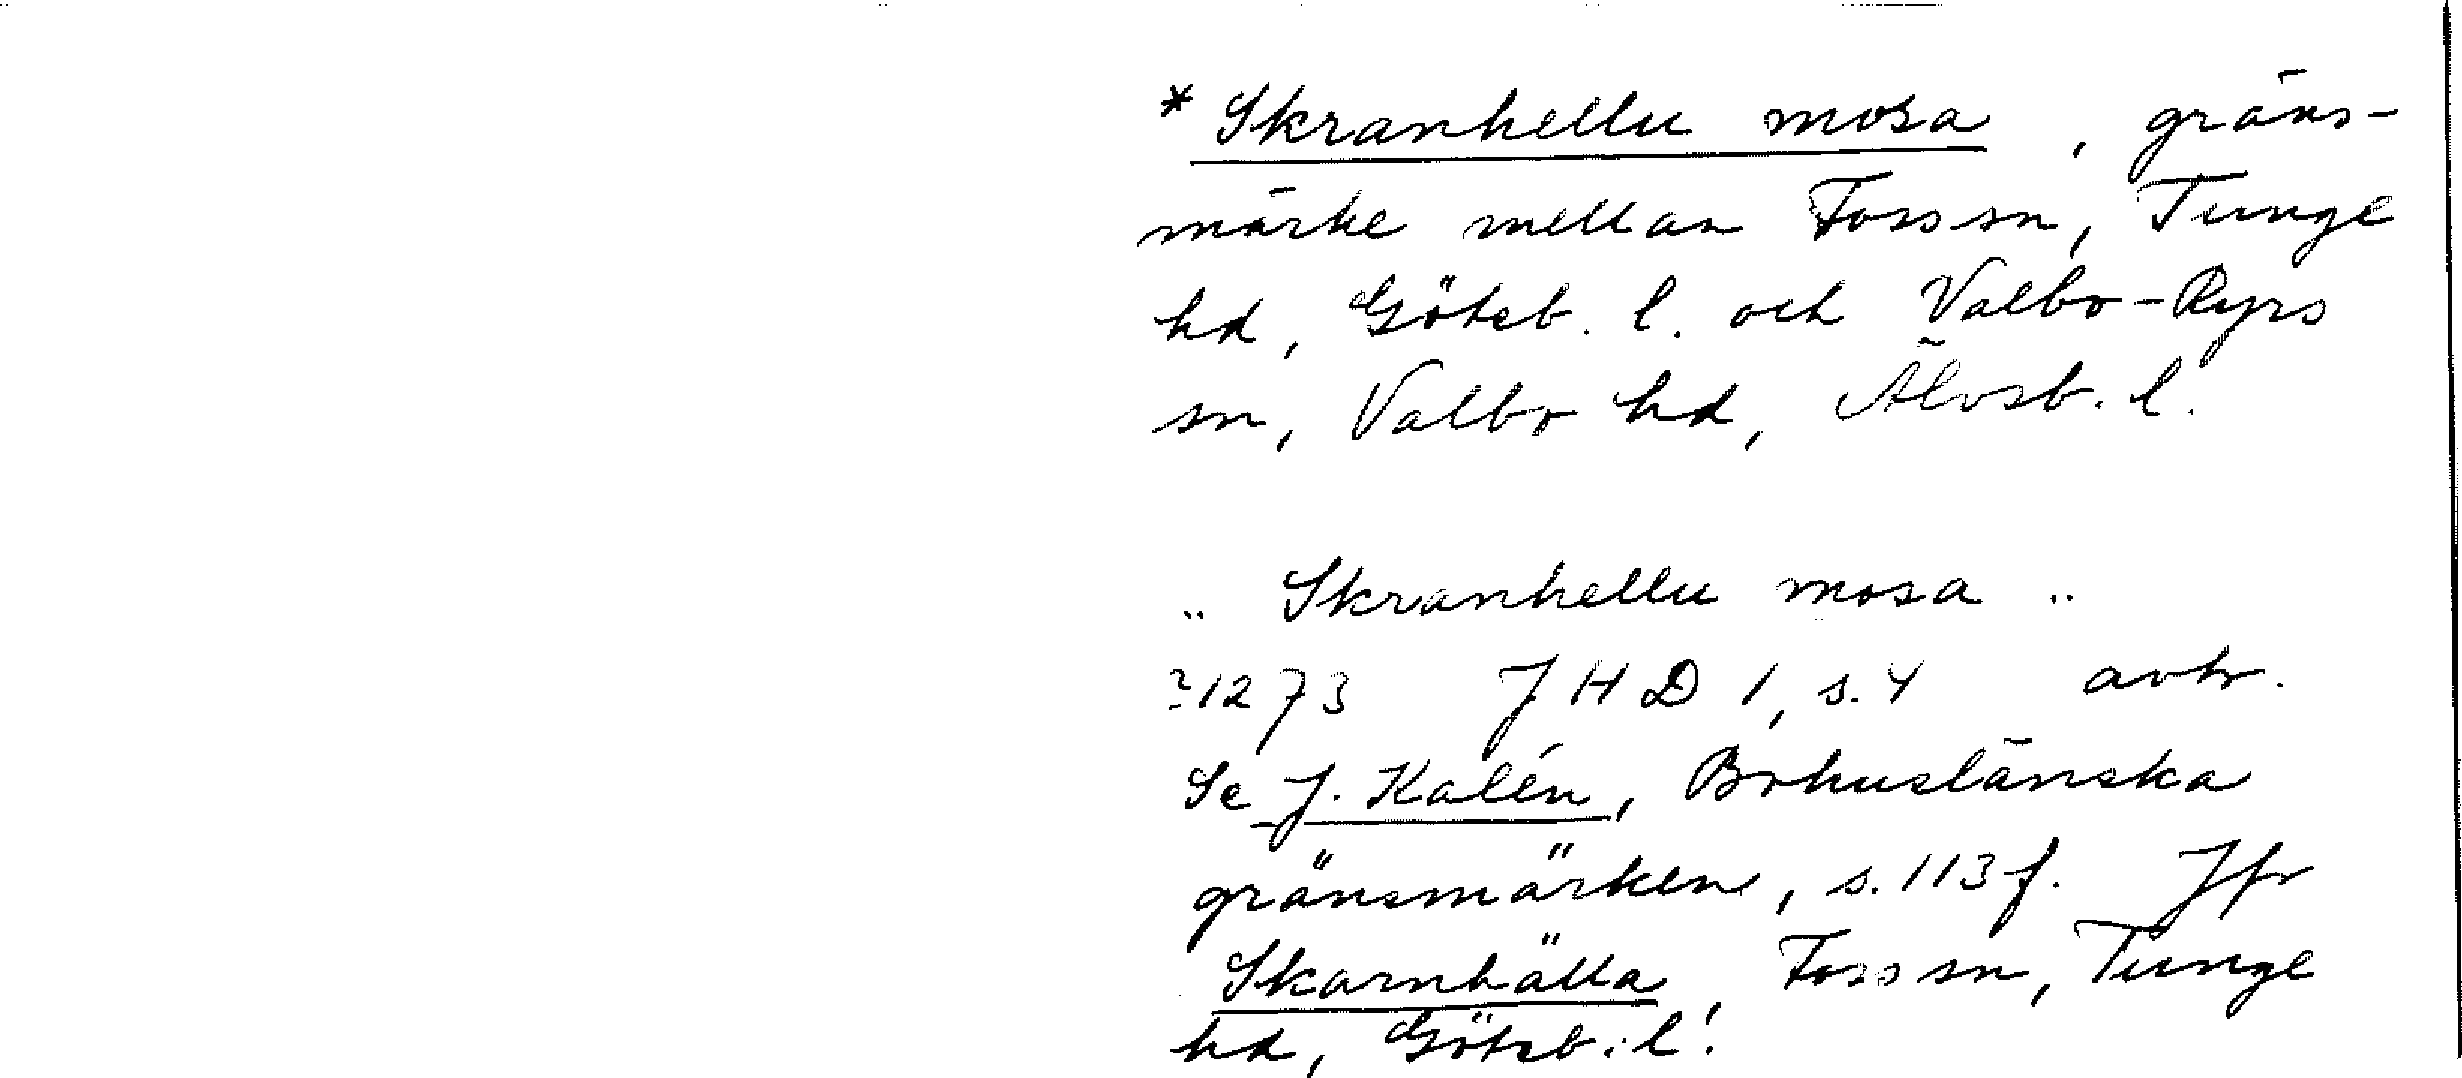 * Skranhellu mosa, gräns-
märke mellan Foss sn, Tunge
hd, Göteb. l. och Valbo-Ryrs
sn, Valbo hd, Älvsb. l.
.. Skranhellu mosa ..
?1273 JHD 1, s. 4 avtr.
Se J. Kalén, Bohuslänska
gränsmärken, s. 113 f. Jfr
Skarnhälla, Foss sn, Tunge
hd, Göteb. l!